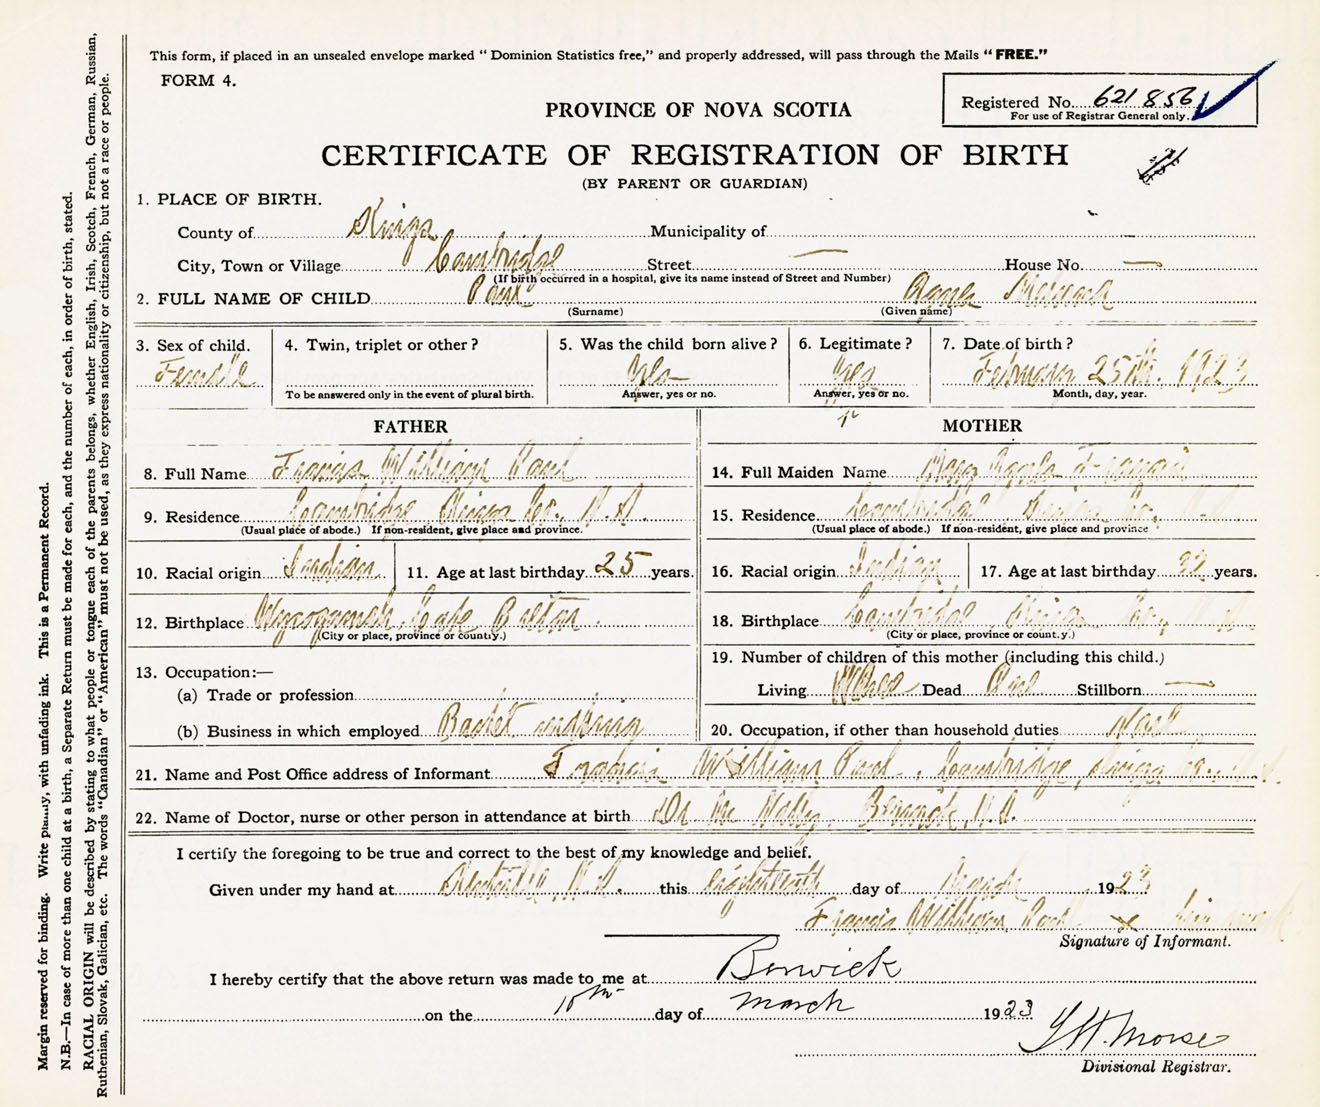 This form, if placed in an unsealed envelope marked " Dominion Statistics free," and properly addressed, will pass through the Mails " FREE."
FORM 4.
Registered No. 621856
For use of Registrar General only.
PROVINCE OF NOVA SCOTIA
CERTIFICATE OF REGISTRATION OF BIRTH
(BY PARENT OR GUARDIAN)
1. PLACE OF BIRTH.
County of Kings Municipality of
City, Town or Village Cambridge Street — House No. —
(If birth occurred in a hospital, give its name instead of Street and Number)
2. FULL NAME OF CHILD Paul Agnes
(Surname) (Given name)
3. Sex of child. 4. Twin, triplet or other? 5. Was the child born alive? 6. Legitimate? 7. Date of birth?
Female Yes Yes February 25th. 1923
To be answered only in the event of plural birth. Answer, yes or no. Answer, yes or no. Month, day, year.
FATHER MOTHER
8. Full Name Francis William Paul 14. Full Maiden Name Mary
9. Residence Cambridge Kings Co., N.S. 15. Residence Cambridge Kings Co., N.S.
(Usual place of abode.) If non-resident, give place and province. (Usual place of abode.) If non-resident, give place and province
10. Racial origin Indian 11. Age at last birthday 25 years. 16. Racial origin Indian 17. Age at last birthday years.
12. Birthplace Whycocomah Cape Breton 18. Birthplace Cambridge Kings Co., N.S.
(City or place, province or county.) (City or place, province or county.)
13. Occupation:— 19. Number of children of this mother (including this child.)
(a) Trade or profession Living Three Dead One Stillborn —
(b) Business in which employed Basket making 20. Occupation, if other than household duties None
21. Name and Post Office address of Informant Francis William Paul, Cambridge, Kings Co., N.S.
22. Name of Doctor, nurse or other person in attendance at birth Dr Berwick, N.S.
I certify the foregoing to be true and correct to the best of my knowledge and belief.
Given under my hand at N.S. this day of March 1923
Francis William Paul x his mark
Signature of Informant.
I hereby certify that the above return was made to me at Berwick
on the day of March 1923
Morse
Divisional Registrar.
Margin reserved for binding. Write plainly, with unfading ink. This is a Permanent Record.
N.B.—In case of more than one child at a birth, a Separate Return must be made for each, and the number of each, in order of birth, stated.
RACIAL ORIGIN will be described by stating to what people or tongue each of the parents belongs, whether English, Irish, Scotch, French, German, Russian,
Ruthenian, Slovak, Galician, etc. The words "Canadian" or "American" must not be used, as they express nationality or citizenship, but not a race or people.